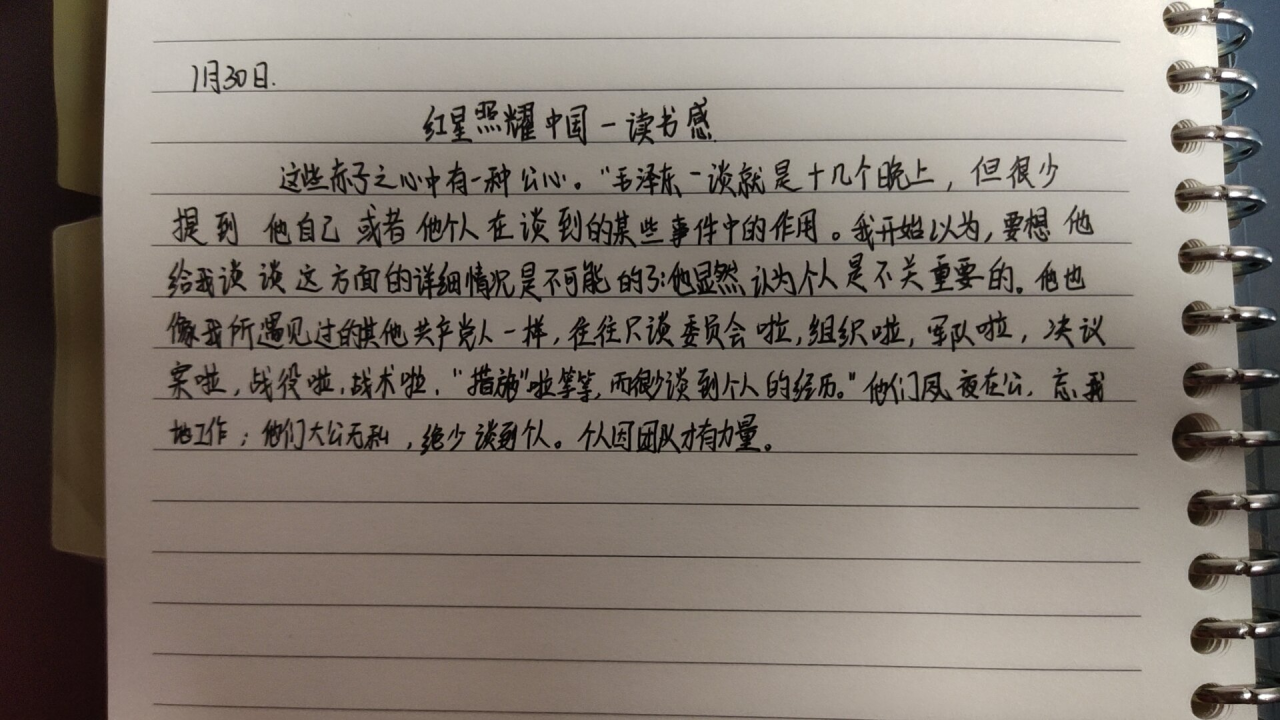 1月30日.
红星照耀中国-读书感
这些赤子之心中有一种公心。"毛泽东一谈就是十几个晚上，但很少
提到他自己或者他个人在谈到的某些事件中的作用。我开始以为，要想他
给我谈谈这方面的详细情况是不可能的了:他显然认为个人是不关重要的。他也
像我所遇见过的其他共产党人一样，往往只谈委员会啦，组织啦，军队啦，决议
案啦，战役啦，战术啦，"措施"啦等等，而很少谈到个人的经历。"他们夙夜在公，忘我
地工作；他们大公无私，绝少谈到个人。个人因团队才有力量。